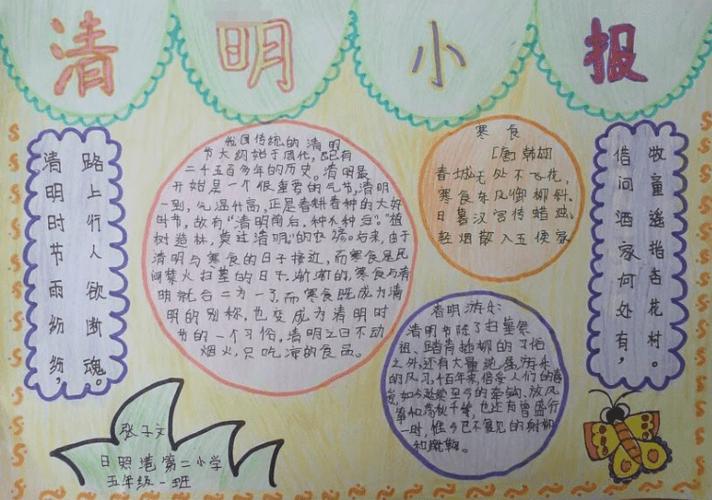 清明小报
清明时节雨纷纷，
路上行人欲断魂。
我国传统的清明
节大约始于周代，已有
二千五百多年的历史。清明最
开始是一个很重要的节气，清明
一到，气温升高，正是春耕春种的大好
时节，故有“清明前后，种瓜种豆”。“植
树造林，莫过清明。”的农谚。后来，由于
清明与寒食的日子接近，而寒食是民
间禁火扫墓的日子，渐渐的，寒食与清
明就合二为一了，而寒食既成为清
明的别称，也变成为清明时
节的一个习俗，清明之日不动
烟火，只吃凉的食品。
寒食
[唐]韩翃
春城无处不飞花，
寒食东风御柳斜。
日暮汉宫传蜡烛，
轻烟散入五侯家
借问洒家何处有，
牧童遥指杏花村。
清明游乐
清明节除了扫墓祭
祖、踏青插柳的习俗
之外，还有大量的游乐
的风习，千百年来，倍受人们的喜
爱，如今延续至今的牵钩、放风
筝和荡秋千等，也还有曾盛行
一时，惟今已不复见的射柳
和蹴鞠。
张子文
日照港第二小学
五年级一班